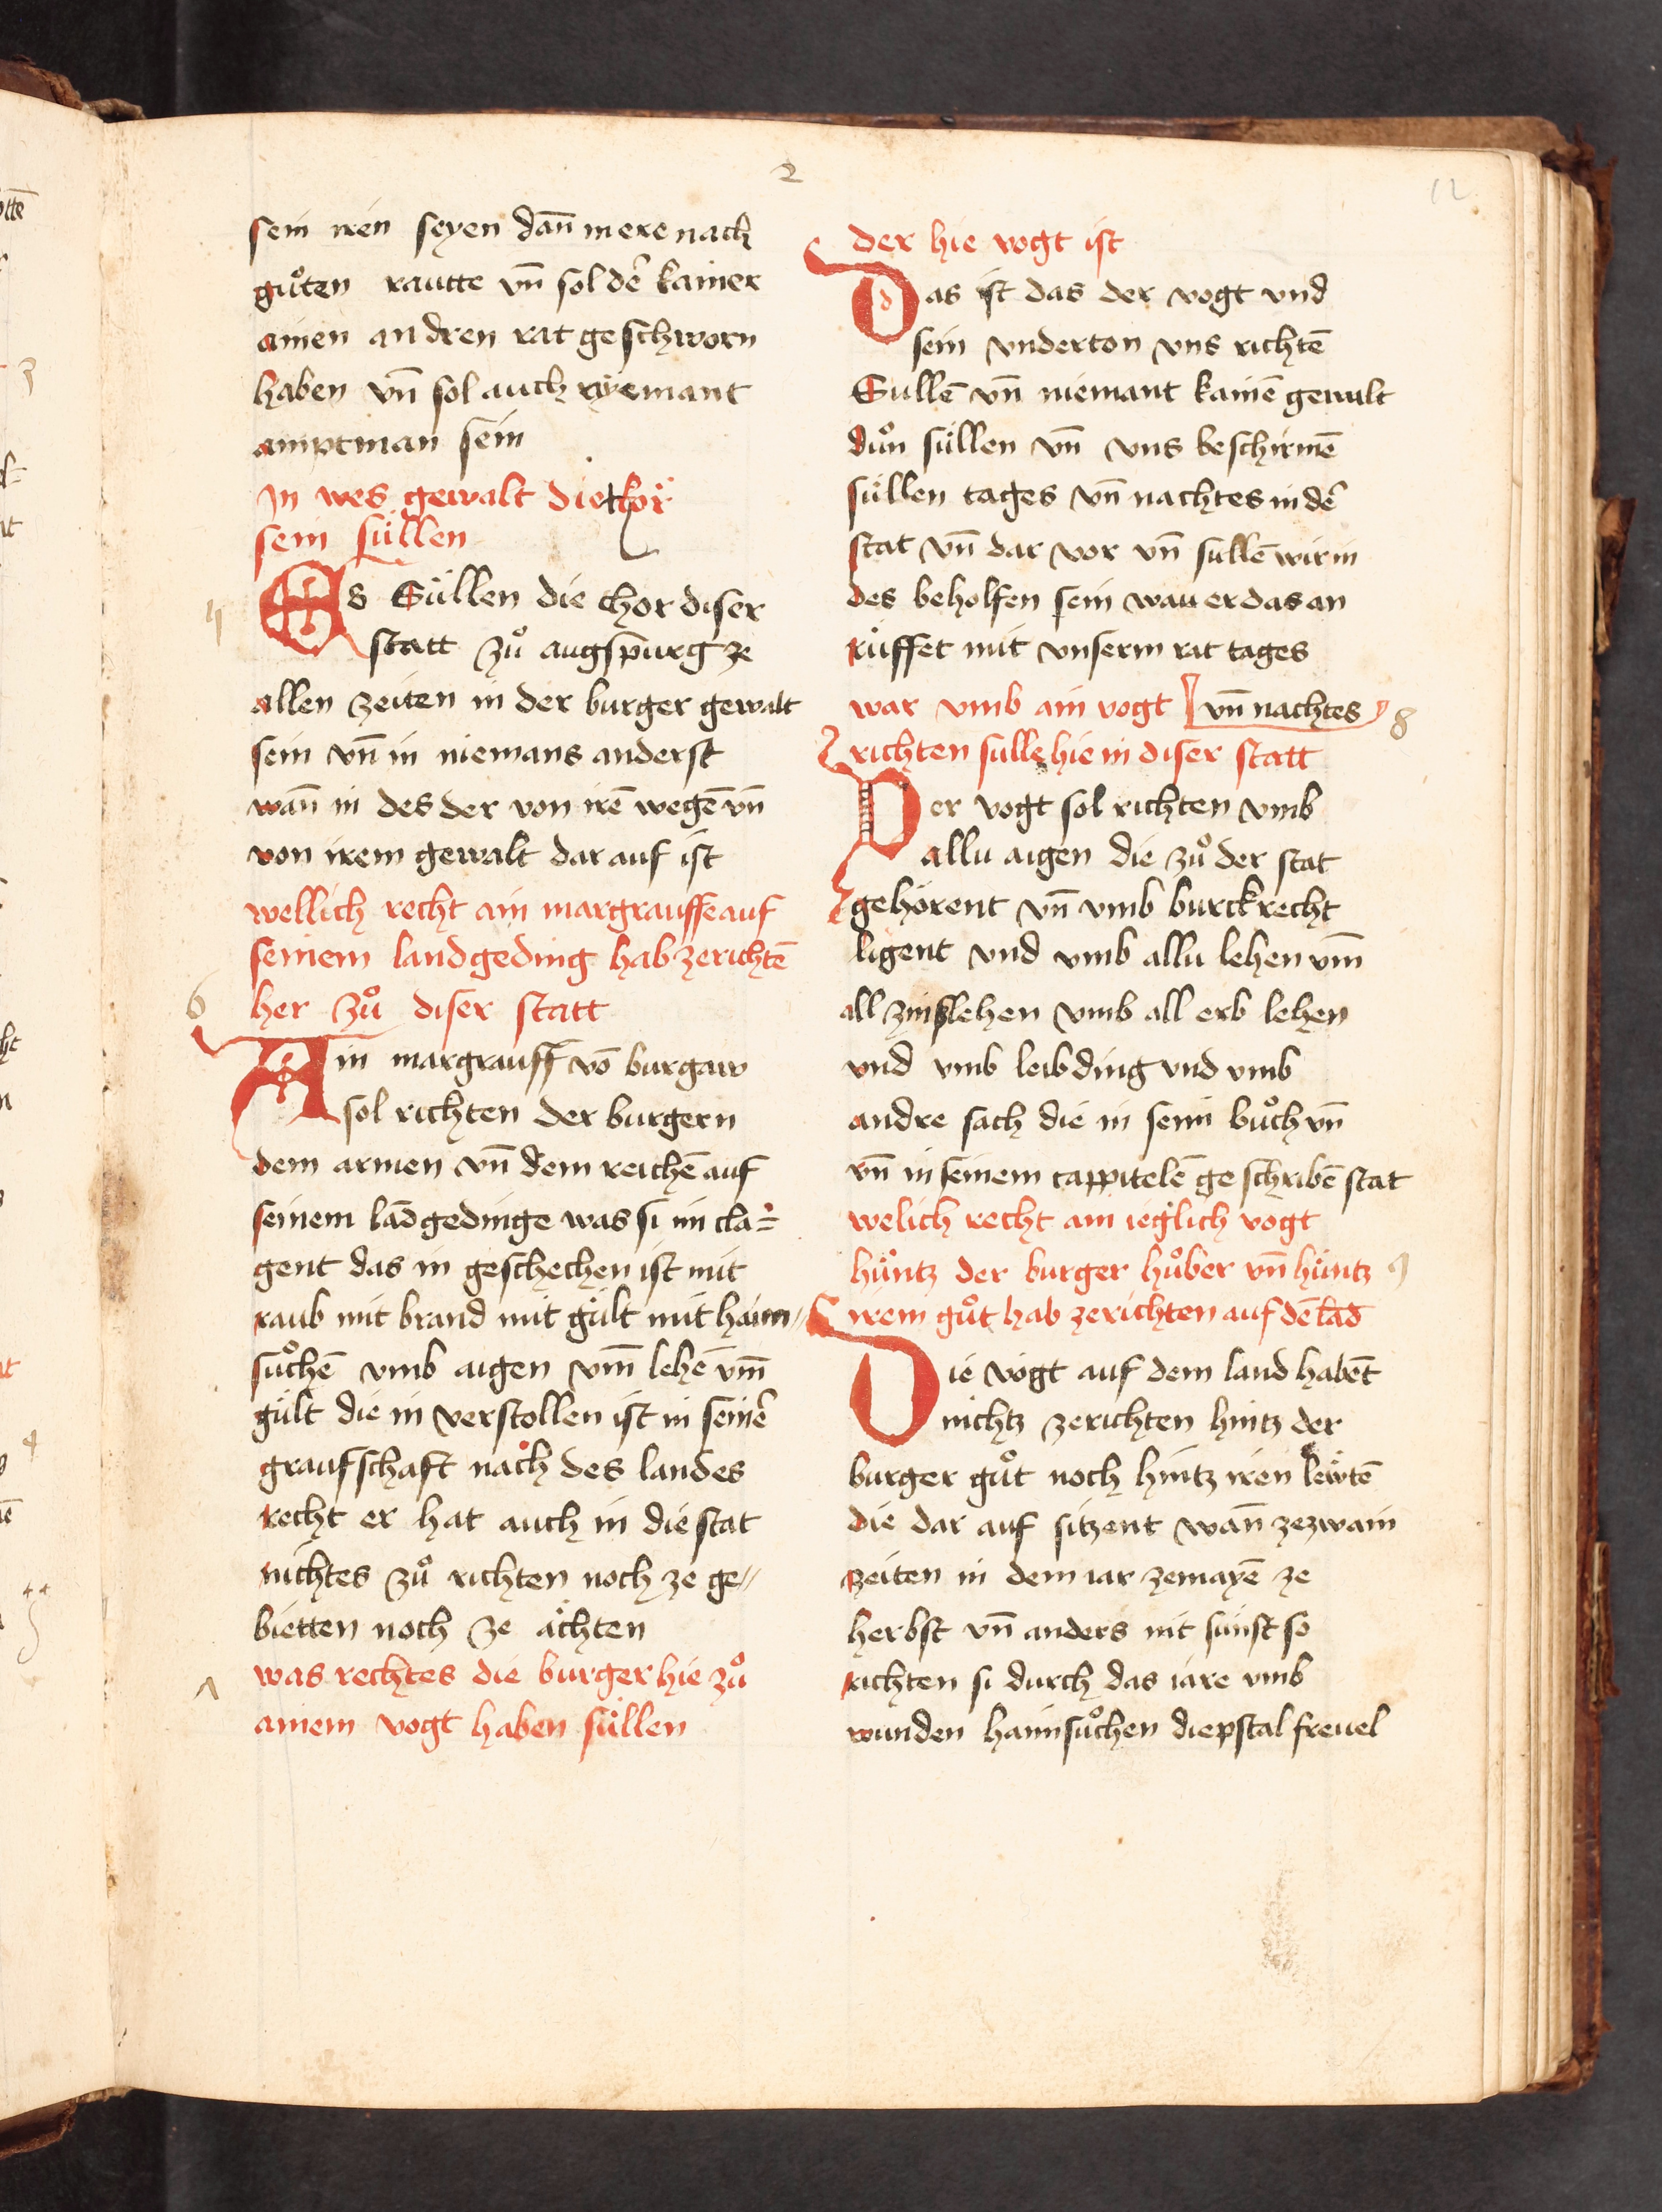 2
12
sein iren seyen dan̄ mere nach
gůten rautte vn̄ sol der̄ kainer
ainen andren rat geschworn
haben vn̄ sol auch nyemant
amptman sein
In wes gewalt die tor
sein süllen
Es Süllen die thor diser
statt zů augspurg ze
allen zeiten in der burger gewalt
sein vn̄ in niemans anderst
wan̄ in des der von irē wegē vn̄
von irem gewalt dar auf ist
wellich recht ain margrauffe auf
seinem landgeding hab zerichtē
6 her zů diser statt
Ain margrauff vō burgaw
sol richten der burgern
dem armen vn̄ dem reichē auf
seinem lādgedinge was si im cla=
gent das in geschechen ist mit
raub mit brand mit gült mit haim//
sůchē vmb aigen vm̄ lehē vm̄
gült die in verstollen ist in seiner̄
graufschaft nach des landes
recht er hat auch in die stat
nichtes zů richten noch ze ge//
bietten noch ze ächten
was rechtes die burger hie zů
ainem vogt haben süllen
der hie vogt ist
Das ist das der vogt vnd
sein vnderton vns richtē
Sullē vn̄ niemant kainē gewalt
důn süllen vn̄ vns beschirmē
süllen tages vn̄ nachtes in der̄
stat vn̄ dar vor vn̄ sullē wir in
des beholfen sein wau er das an
rüffet mit vnserm rat tages
war vmb ain vogt vn̄ nachtes 8
richten sulle hie in diser statt
Der vogt sol richten vmb
allu aigen die zů der stat
gehörent vn̄ vmb burckrecht
ligent vnd vmb allu lehen vm̄
all zinslehen vmb all erb lehen
vnd vmb leibding vnd vmb
andre sach die in seim bůch vn̄
vn̄ in seinem cappitelē geschribē stat
welich recht ain ieglich vogt
hüntz der burger hůber vn̄ hüntz 9
irem gůt hab zerichten auf dē lād
Die vögt auf dem land habēt
nichtz zerichten hintz der
burger gůt noch hintz iren lewtē
die dar auf sitzent wan̄ ze zwain
zeiten in dem iar ze mayē ze
herbst vn̄ anders nit sunst so
richten si durch das iare vmb
wunden haimsůchen diepstal freuel